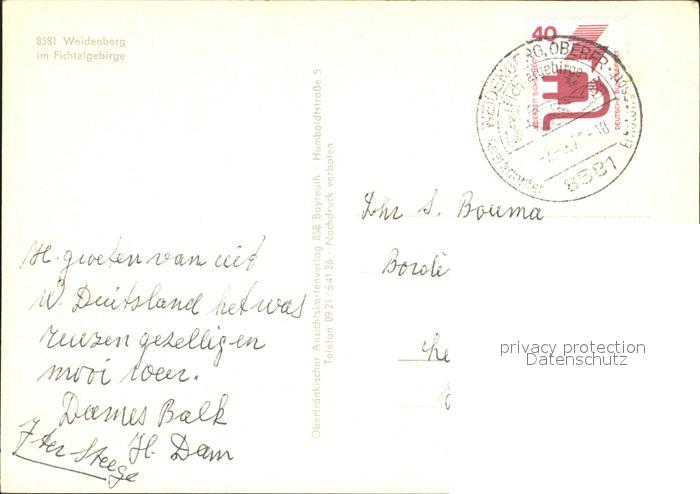 8581 Weidenberg
im Fichtelgebirge
H. groeten van uit
W. Duitsland het was
reuzen gezellig en
mooi weer.
Dames Balk
H. Dam
J ter Steege
Oberfränkischer Ansichtskartenverlag 858 Bayreuth · Humboldtstraße 5
Telefon 09 21 / 6 41 26 · Nachdruck verboten
40
DEUTSCHE BUNDESPOST
WEIDENBERG, OBERFR.
Fichtelgebirge
8581
Dhr S. Bouma
privacy protection
Datenschutz